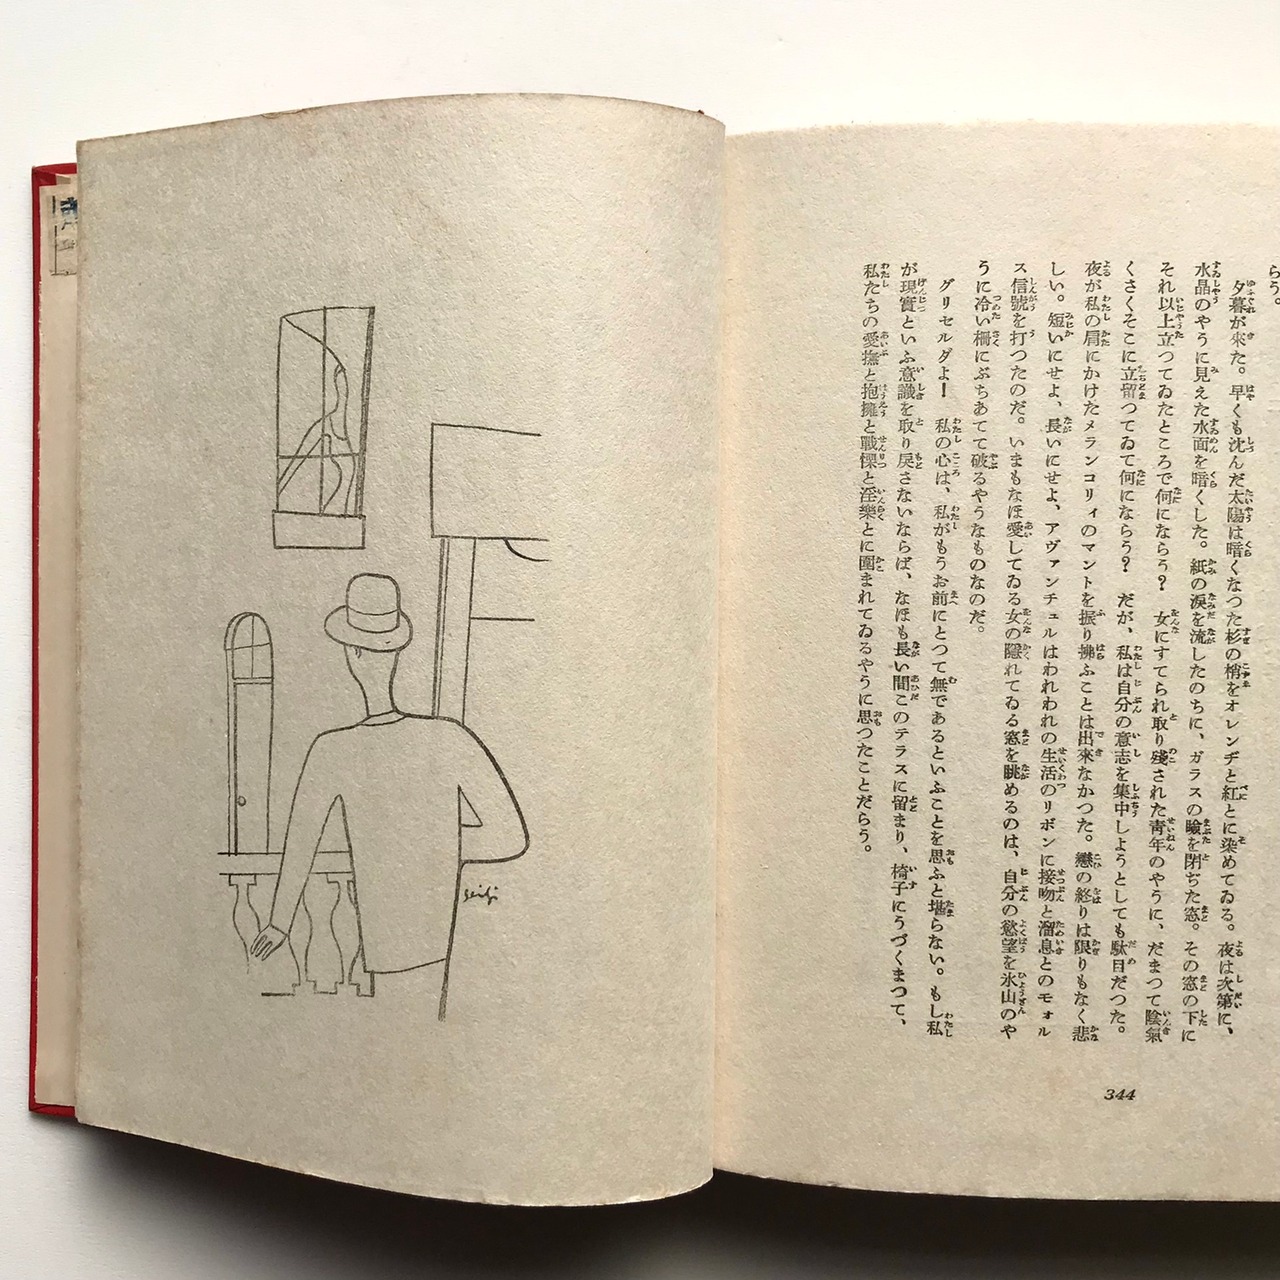 らう。
夕暮が來た。早くも沈んだ太陽は暗くなつた杉の梢をオレンヂと紅とに染めてゐる。夜は次第に、
水晶のやうに見えた水面を暗くした。紙の淚を流したのちに、ガラスの瞼を閉ぢた窓。その窓の下に
それ以上立つてゐたところで何にならう？　女にすてられ取り殘された靑年のやうに、だまつて陰氣
くさくそこに立留つてゐて何にならう？　だが、私は自分の意志を集中しようとしても駄目だつた。
夜が私の肩にかけたメランコリィのマントを振り拂ふことは出來なかつた。戀の終りは限りもなく悲
しい。短いにせよ、長いにせよ、アヴァンチュルはわれわれの生活のリボンに接吻と溜息とのモォル
ス信號を打つたのだ。いまもなほ愛してゐる女の隱れてゐる窓を眺めるのは、自分の慾望を氷山のや
うに冷い柵にぶちあてて破るやうなものなのだ。
グリセルダよ！　私の心は、私がもうお前にとつて無であるといふことを思ふと堪らない。もし私
が現實といふ意識を取り戾さないならば、なほも長い間このテラスに留まり、椅子にうづくまつて、
私たちの愛撫と抱擁と戰慄と淫樂とに圍まれてゐるやうに思つたことだらう。
344
Seiji